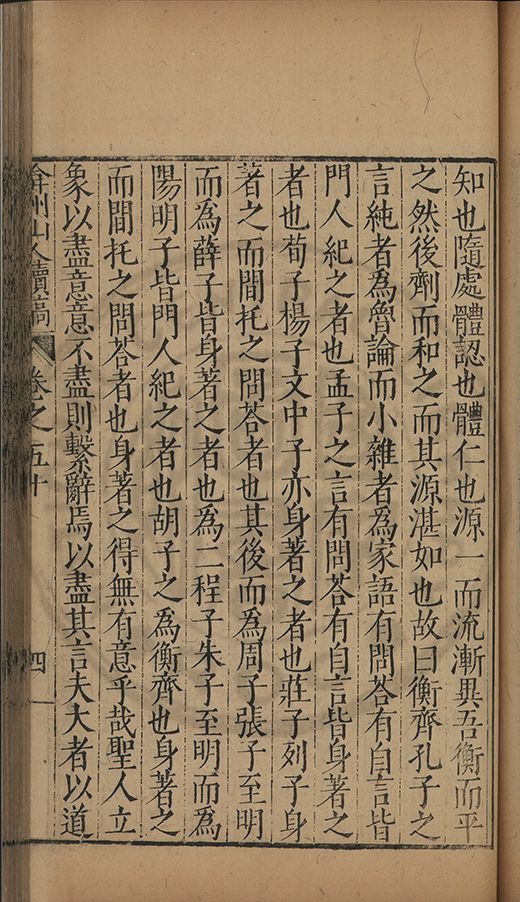 知也隨處體認也體仁也源一而流漸異吾衡而平
之然後劑而和之而其源湛如也故曰衡齊孔子之
言純者爲魯論而小雜者爲家語有問荅有自言皆
門人紀之者也孟子之言有問荅有自言皆身著之
者也荀子楊子文中子亦身著之者也莊子列子身
著之而間托之問荅者也其後而爲周子張子至明
而爲薛子皆身著之者也爲二程子朱子至明而爲
陽明子皆門人紀之者也胡子之爲衡齊也身著之
而間托之問荅者也身著之得無有意乎哉聖人立
象以盡意意不盡則繫辭焉以盡其言夫大者以道
弇州山人續稿 卷之五十 四